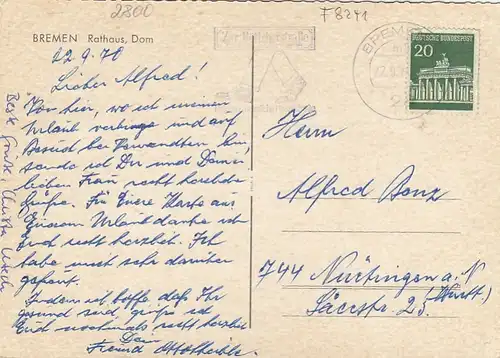 2800
F 8241
BREMEN Rathaus, Dom
22.9.70
Lieber Alfred!
Von hier, wo ich meinen
Urlaub verbringe und auf
Besuch bei Verwandten bin,
sende ich Dir und Deiner
lieben Frau recht herzliche
Grüße. Für Eure Karte aus
Eurem Urlaub danke ich
Euch recht herzlich. Ich
habe mich sehr darüber
gefreut.
Indem ich hoffe, daß Ihr
gesund seid, grüße ich
Euch nochmals recht herzlich
Dein
Freund
Beste Grüße
BREMEN
DEUTSCHE BUNDESPOST
20
Herrn
Alfred Benz
744 Nürtingen a. N.
(Württ)
Säerstr. 23